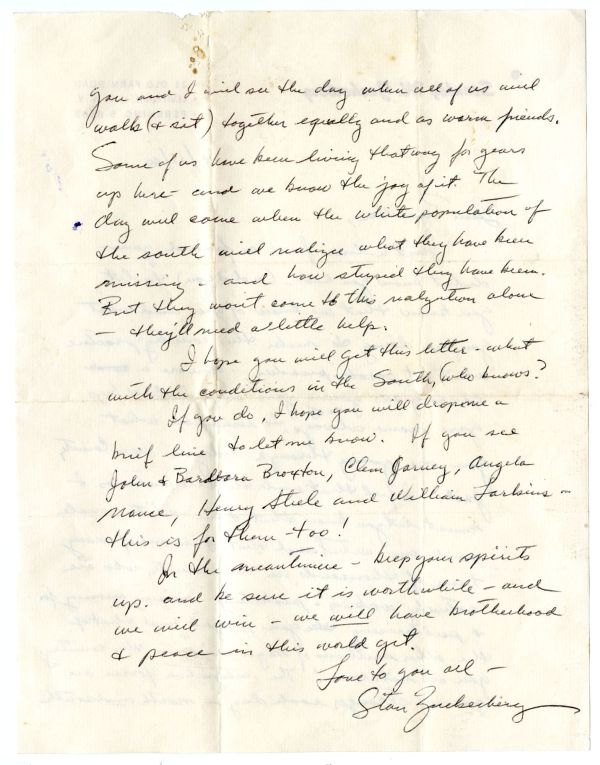 you and I will see the day when all of us will
walk (& sit) together equally and as warm friends.
Some of us have been living that way for years
up here - and we know the joy of it. The
day will come when the white population of
the south will realize what they have been
missing - and how stupid they have been.
But they won't come to this realization alone
- they'll need a little help.
I hope you will get this letter - what
with the conditions in the South, (who knows?
If you do, I hope you will drop me a
brief line to let me know. If you see
John & Bardbara Broxton, Clem Jarney, Angela
Nance, Henry Steele and William Larkins -
this is for them - too!
In the meantime - keep your spirits
up. and be sure it is worthwhile - and
we will win - we will have brotherhood
& peace in this world yet.
Love to you all -
Stan Zuckerberg